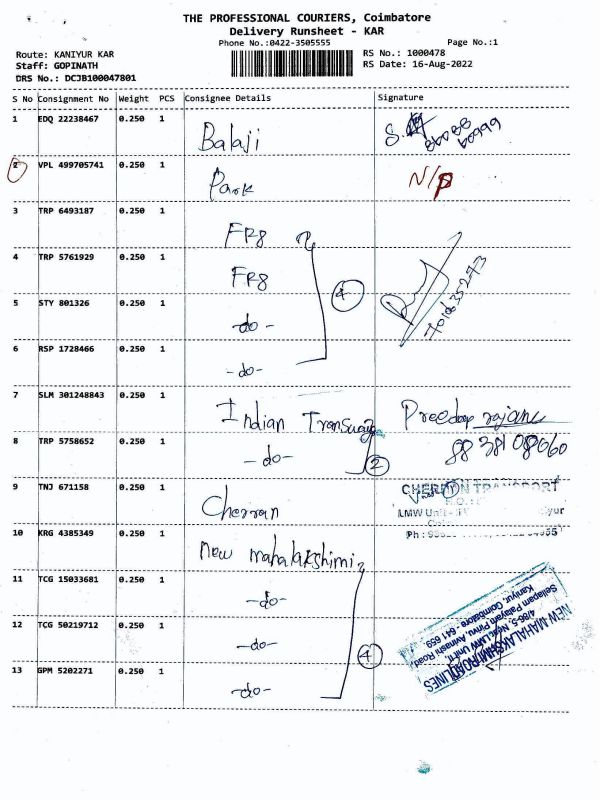 THE PROFESSIONAL COURIERS, Coimbatore
Delivery Runsheet - KAR
Phone No.:0422-3505555 Page No.:1
Route: KANIYUR KAR RS No.: 1000478
Staff: GOPINATH RS Date: 16-Aug-2022
DRS No.: DCJB100047801
S No Consignment No Weight PCS Consignee Details Signature
1 EDQ 22238467 0.250 1 Balaji
2 VPL 499705741 0.250 1 Park N/P
3 TRP 6493187 0.250 1 FR8
4 TRP 5761929 0.250 1 FR8 4
5 STY 801326 0.250 1 -do-
6 RSP 1728466 0.250 1 -do-
7 SLM 301248843 0.250 1 Indian
8 TRP 5758652 0.250 1 -do- 2 88 381 08060
9 TNJ 671158 0.250 1 Cherran CHERRAN TRANSPORT
LMW Unit
Ph :
10 KRG 4385349 0.250 1 New mahalakshimi
11 TCG 15033681 0.250 1 -do-
12 TCG 50219712 0.250 1 -do- 4
13 GPM 5202271 0.250 1 -do-
NEW MAHALAKSHMI ROADLINES
4/86,5, Near LMW Unit II,
Sellapam Palayam Pirivu, Avinashi Road
Kaniyur, Coimbatore - 641 659